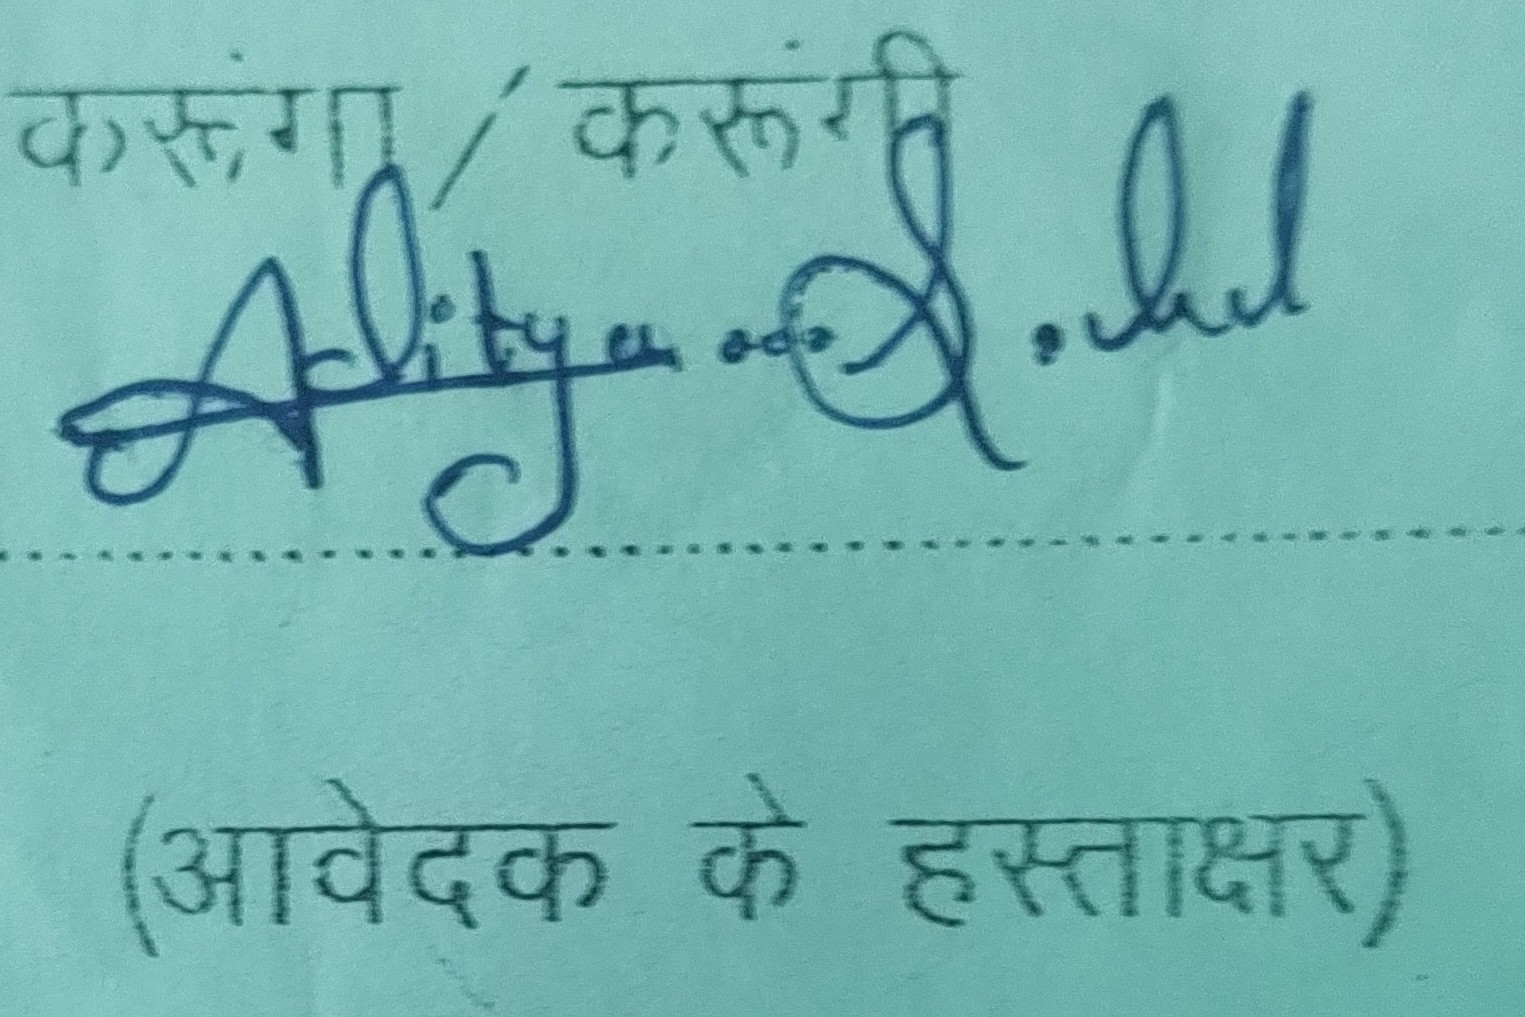 करूंगा / करूंगी
Aditya
(आवेदक के हस्ताक्षर)